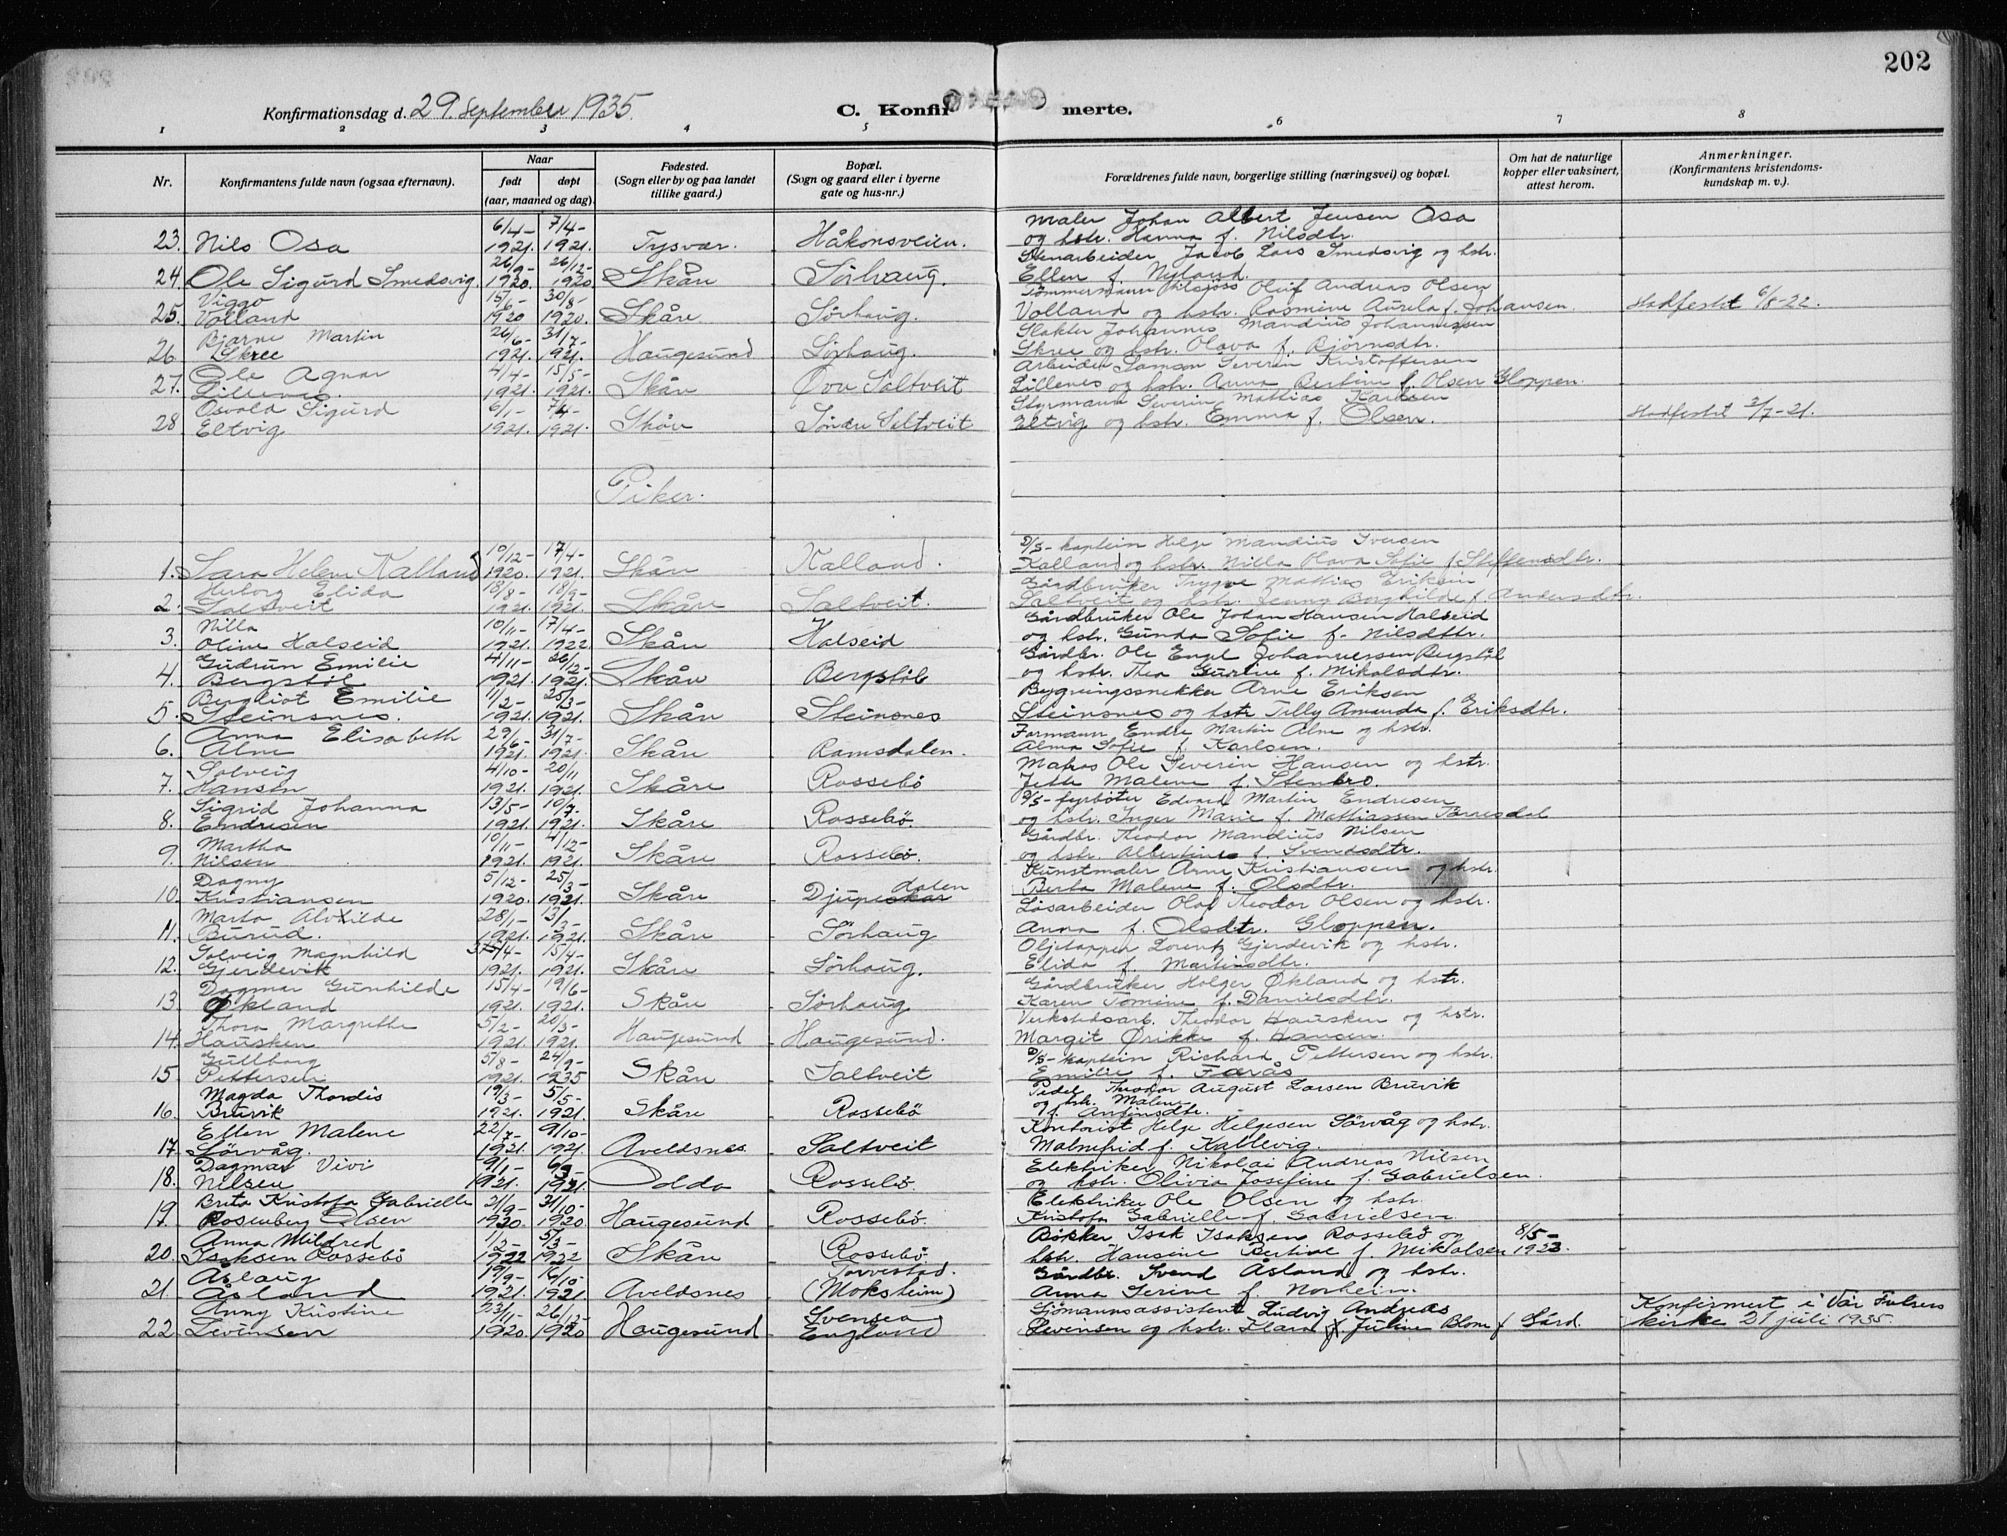 202
Konfirmationsdag d. 29. September 1935.
C. Konfirmerte.
1 2 3 4 5 6 7 8
Nr.
Konfirmantens fulde navn (ogsaa efternavn).
Naar
født døpt
(aar, maaned og dag).
Fødested.
(Sogn eller by og paa landet
tillike gaard.)
Bopæl.
(Sogn og gaard eller i byerne
gate og hus-nr.)
Forældrenes fulde navn, borgerlige stilling (næringsvei) og bopæl.
Om hat de naturlige
kopper eller vaksinert,
attest herom.
Anmerkninger.
(Konfirmantens kristendoms-
kundskap m. v.).
6/4- 7/4- Maler Johan Albert Jensen Osa
23. Nils Osa 1921. 1921. Tysvær. Håkonsveien. og hstr. Hanna f. Nilsdtr.
26/9- 26/12- Stenarbeider Jacob Lars Smedsvig og hstr.
24. Ole Sigurd Smedsvig 1920. 1920 Skåre Sørhaug. Ellen f. Nyland.
Viggo 15/6- 30/8- Tømmermann Olaf Andreas Olsen
25. Volland 1920 1920. Skåre Sørhaug. Volland og hstr. Rasmine Aurela f. Johansen. Stadfestet 6/8-22.
Bjarne Martin 26/6- 31/7- Slakter Johannes Mandius Johannessen
26. Skree 1921. 1921. Haugesund Sørhaug. Skree og hstr. Olava f. Bjørnsdtr.
Ole Agnar 4/4- 15/5- Arbeider Samson Severin Kristoffersen
27. Lillenes. 1921. 1921. Skåre Øvre Saltveit Lillenes og hstr. Anna Bertine f. Olsen Gloppen.
Osvald Sigurd 6/1- 7/4- Styrmann Severin Mattias Karlsen
28 Eltvig 1921. 1921. Skåre Søndre Saltveit Eltvig og hstr. Emma f. Olsen. Stadfestet 2/7-21.
Piker.
10/12- 17/4- D/S-kaptein Helge Mandius Iversen
1. Sara Helene Kalland 1920. 1921. Skåre Kalland. Kalland og hstr. Nilla Olava Sofie f. Steffensdtr.
Herborg Elida 18/8- 18/9- Gårdbruker Trygve Mattias Eriksen
2. Saltveit 1921. 1921. Skåre Saltveit. Saltveit og hstr. Jenny Borghilde f. Andersdtr.
Nilla 10/11- 17/4- Gårdbruker Ole Johan Hansen Halseid
3. Oline Halseid 1921. 1922. Skåre Halseid og hstr. Gunda Sofie f. Nilsdtr.
Gudrun Emilie 4/11- 26/12- Gårdbr. Ole Engel Johannessen Bergstøl
4. Bergstøl 1921. 1921. Skåre Bergstøl og hstr. Thea Gurline f. Mikalsdtr.
Bergliot Emilie 11/2- 25/3- Bygningssnekker Arne Eriksen
5. Steinsnes. 1921. 1921. Skåre Steinsnes Steinsnes og hstr. Tilly Amanda f. Eriksdtr.
Anna Elisabeth 29/6- 31/7- Formann Endre Martin Alne og hstr.
6. Alne 1921. 1921. Skåre Ramsdalen. Alma Sofie f. Karlsen.
Solveig 4/10- 20/11 Matros Ole Severin Hansen og hstr.
7. Hansen 1921. 1921. Skåre Rossebø Jette Malene f. Stenbro.
Sigrid Johanna 13/5- 10/7. D/S-fyrbøter Edvard Martin Endresen
8. Endresen 1921. 1921. Skåre Rossebø. og hstr. Inger Marie f. Mathiassen Tørresdal
Martha 10/11- 4/12- Gårdbr. Theodor Mandius Nilsen
9. Nilsen 1921. 1921. Skåre Rossebø. og hstr. Albertine f. Svendsdtr.
Dagny 5/12- 25/3- dalen Kunstmaler Arne Kristiansen og hstr.
10. Kristiansen 1920. 1921. Skåre Djupeskar Berta Malene f. Olsdtr.
Marta Alvhilde 28/1- 13/3- Løsarbeider Olaf Theodor Olsen og hstr.
11. Burud. 1921. 1921. Skåre Sørhaug Anna f. Olsdtr. Gloppen.
Solveig Magnhild /4- 15/4- Oljetapper Lorentz Gjerdevik og hstr.
12. Gjerdevik 1921. 1921. Skåre Sørhaug. Elida f. Martinsdtr.
Dagmar Gunhilde 15/4- 19/6- Gårdbruker Holger Økland og hstr.
13. Økland 1921. 1921. Skåre Sørhaug Karen Tomine f. Danielsdtr.
Thora Margrethe 5/2- 20/3- Verkstedsarb. Theodor Hausken og hstr.
14. Hausken 1921. 1921. Haugesund Haugesund. Margit Ørikke f. Hansen.
Gullborg 5/8- 24/9- D/S-kaptein Richard Pettersen og hstr.
15. Pettersen 1921. 1935 Skåre Saltveit Emilie f. Farås
Magda Thordis 19/3- 5/5- Pedel Theodor August Larsen Bruvik
16. Bruvik 1921. 1921. Skåre Rossebø og hstr. Malene
f. Anfinsdtr.
Ellen Malene 22/7- 9/10- Kontorist Helge Helgesen Sørvåg og hstr.
17. Sørvåg. 1921. 1921 Avaldsnes Saltveit Malmfrid f. Kallevig.
Dagmar Vivi 9/1- 6/3- Elektriker Nikolai Andreas Nilsen
18. Nilsen 1921. 1921. Odda Rossebø og hstr. Olivia Josefine f. Gabrielsen.
Brita Kristofa Gabrielle 21/9- 31/10- Elektriker Ole Olsen og hstr.
19. Rosenberg Olsen 1920. 1920 Haugesund Rossebø. Kristofa Gabrielle f. Gabrielsen
Anna Mildred 1/2- 5/3- Bøkker Isak Isaksen Rossebø og 8/5-
20. Isaksen Rossebø 1922 1922 Skåre Rossebø hstr. Hansine Bertine f. Mikkalsen 1923.
Åslaug 19/9- 16/10- Torvestad. Gårdbr. Svend Åsland og hstr.
21. Åsland 1921. 1921 Avaldsnes (Moksheim) Anna Serine f. Norheim.
Anny Kristine 23/11- 26/12- Svensea Sjømannsassistent Ludvig Andreas Konfirmert i Vår Frelsers
22. Levinsen 1920 1920 Haugesund England Levinsen og hstr. Klara Juline Blom f. Gård. kirke 21 juli 1935.